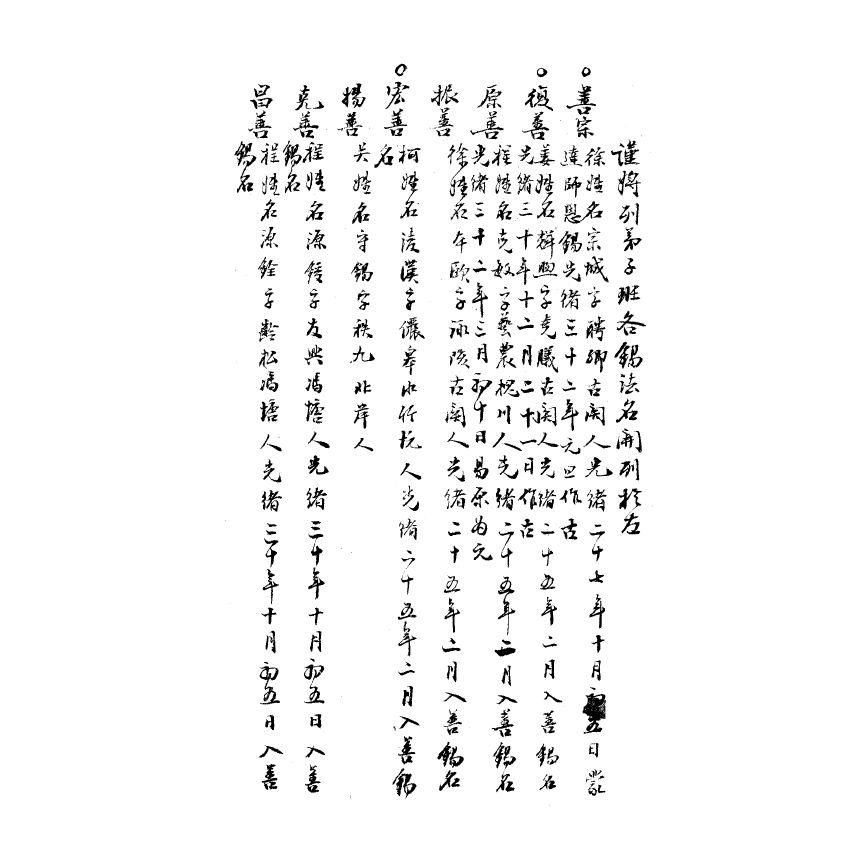 謹將列弟子班各錫法名開列於左
善宗
徐姓名宗城字聘卿古閣人光緒二十七年十月初五日蒙
達師恩錫光緒三十二年元旦作古
復善
姜姓名輝照字堯曦古閣人光緒二十五年二月入善錫名
光緒三十年十二月二十一日作古
原善
程姓名克奴字藝農槐川人光緒二十五年二月入善錫名
光緒三十二年三月初十日易原為元
振善
徐姓名本歐字詠陔古閣人光緒二十五年二月入善錫名
宏善
柯姓名淩漢字儷皋水竹坑人光緒二十五年二月入善錫
名
揚善
吳姓名守錫字秩九北岸人
克善
程姓名源鍾字友興馮塘人光緒三十年十月初五日入善
錫名
昌善
程姓名源銓字齡松馮塘人光緒三十年十月初五日入善
錫名